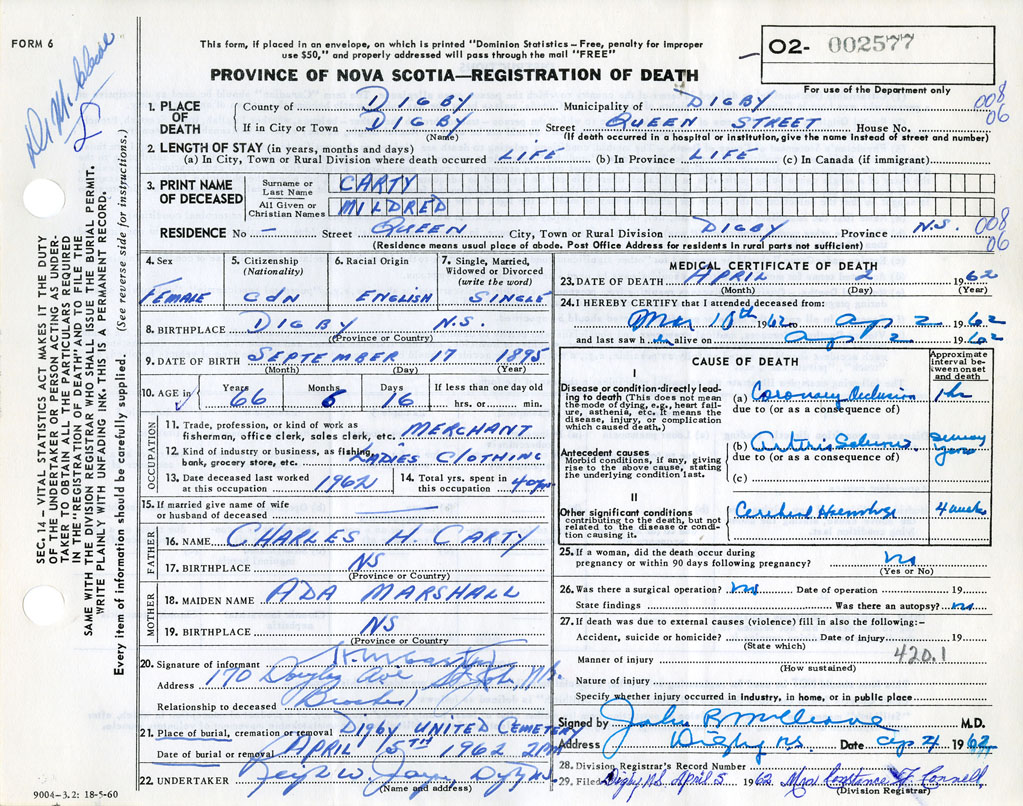 FORM 6
This form, if placed in an envelope, on which is printed "Dominion Statistics – Free, penalty for improper
use $50," and properly addressed will pass through the mail "FREE"
PROVINCE OF NOVA SCOTIA—REGISTRATION OF DEATH
O2- 002577
For use of the Department only
008
06
1. PLACE OF DEATH
County of DIGBY Municipality of DIGBY
If in City or Town DIGBY Street QUEEN STREET House No.
(Name) (If death occurred in a hospital or institution, give the name instead of street and number)
2. LENGTH OF STAY (in years, months and days)
(a) In City, Town or Rural Division where death occurred LIFE (b) In Province LIFE (c) In Canada (if immigrant)
3. PRINT NAME OF DECEASED
Surname or Last Name CARTY
All Given or Christian Names MILDRED
RESIDENCE No – Street QUEEN City, Town or Rural Division DIGBY Province N.S.
008
06
(Residence means usual place of abode. Post Office Address for residents in rural parts not sufficient)
4. Sex FEMALE
5. Citizenship (Nationality) CDN
6. Racial Origin ENGLISH
7. Single, Married, Widowed or Divorced (write the word) SINGLE
8. BIRTHPLACE DIGBY N.S.
(Province or Country)
9. DATE OF BIRTH SEPTEMBER 17 1895
(Month) (Day) (Year)
10. AGE in Years 66 Months 6 Days 16 If less than one day old hrs. or min.
OCCUPATION
11. Trade, profession, or kind of work as fisherman, office clerk, sales clerk, etc. MERCHANT
12. Kind of industry or business, as fishing, bank, grocery store, etc. LADIES CLOTHING
13. Date deceased last worked at this occupation 1962
14. Total yrs. spent in this occupation 40 yrs
15. If married give name of wife or husband of deceased
FATHER
16. NAME CHARLES H. CARTY
17. BIRTHPLACE NS
(Province or Country)
MOTHER
18. MAIDEN NAME ADA MARSHALL
19. BIRTHPLACE NS
(Province or Country
20. Signature of informant
Address 170 Ave St John N.B.
Relationship to deceased Brother
21. Place of burial, cremation or removal DIGBY UNITED CEMETERY
Date of burial or removal APRIL 5TH 1962 2PM
22. UNDERTAKER
(Name and address)
MEDICAL CERTIFICATE OF DEATH
23. DATE OF DEATH APRIL 2 1962
(Month) (Day) (Year)
24. I HEREBY CERTIFY that I attended deceased from:
Mar 10th 1962 to ap 2 1962
and last saw her alive on ap 2 1962
CAUSE OF DEATH
Approximate interval between onset and death
I
Disease or condition directly leading to death (This does not mean the mode of dying, e.g., heart failure, asthenia, etc. It means the disease, injury, or complication which caused death.)
(a) Coronary Occlusion 1 hr
due to (or as a consequence of)
Antecedent causes
Morbid conditions, if any, giving rise to the above cause, stating the underlying condition last.
(b) years
due to (or as a consequence of)
(c)
II
Other significant conditions
contributing to the death, but not related to the disease or condition causing it.
Cerebral Haemorrhage 4 weeks
25. If a woman, did the death occur during
pregnancy or within 90 days following pregnancy? No
(Yes or No)
26. Was there a surgical operation? No Date of operation 19
State findings Was there an autopsy? No
27. If death was due to external causes (violence) fill in also the following:–
Accident, suicide or homicide? Date of injury 19
(State which)
420.1
Manner of injury
(How sustained)
Nature of injury
Specify whether injury occurred in industry, in home, or in public place
Signed by John R McCleave M.D.
Address Digby N.S. Date ap 4 1962
28. Division Registrar's Record Number
29. Filed Digby NS. April 5 1962 Mrs Constance F. Connell
(Division Registrar)
9004–3.2: 18-5-60
Dr McCleave
SEC. 14 – VITAL STATISTICS ACT MAKES IT THE DUTY
OF THE UNDERTAKER OR PERSON ACTING AS UNDER-
TAKER TO OBTAIN ALL THE PARTICULARS REQUIRED
IN THE "REGISTRATION OF DEATH" AND TO FILE THE
SAME WITH THE DIVISION REGISTRAR WHO SHALL ISSUE THE BURIAL PERMIT.
WRITE PLAINLY WITH UNFADING INK. THIS IS A PERMANENT RECORD.
Every item of information should be carefully supplied. (See reverse side for instructions.)